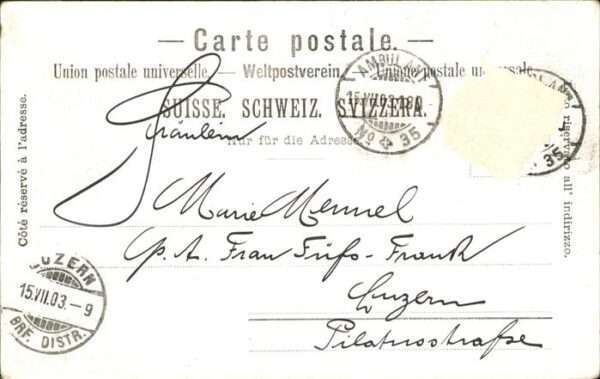 — Carte postale. —
Union postale universelle. — Weltpostverein. — Unione postale universale.
SUISSE. SCHWEIZ. SVIZZERA.
Nur für die Adresse.
Côté réservé à l'adresse.
riservato all' indirizzo.
AMBULANT
15.VII.03
No 4 35
35
Fräulein
Marie Mennel
p. A. Frau
Luzern
Pilatusstraße
LUZERN
15.VII.03.–9
BRF. DISTR.